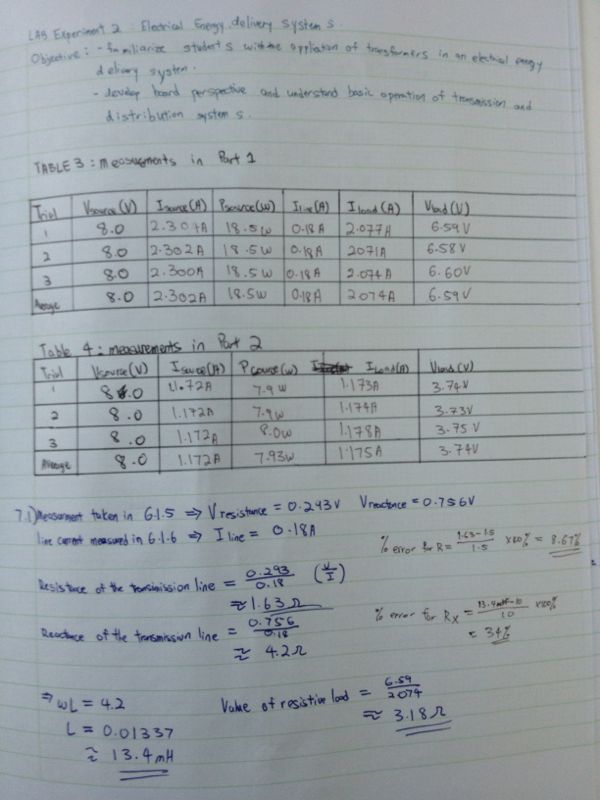 LAB Experiment 2 : Electrical Energy delivery systems.
Objective : - familiarize students with the application of transformers in an electrical energy
delivery system.
- develop board perspective and understand basic operation of transmission and
distribution systems.
TABLE 3 : measurments in Part 1
Trial Vsource(V) Isource(A) Psource(w) Iline(A) Iload(A) Vload(V)
1 8.0 2.304A 18.5w 0.18A 2.077A 6.59V
2 8.0 2.302A 18.5w 0.18A 2071A 6.58V
3 8.0 2.300A 18.5w 0.18A 2.074A 6.60V
Average 8.0 2.302A 18.5w 0.18A 2074A 6.59V
Table 4 : measurements in Part 2
Trial Vsource(V) Isource(A) Psource(w) Iload(A) Vload(V)
1 8.0 1.172A 7.9w 1.173A 3.74V
2 8.0 1.172A 7.9w 1.174A 3.73V
3 8.0 1.172A 8.0w 1.178A 3.75V
Average 8.0 1.172A 7.93w 1.175A 3.74V
7.1) Measurment taken in 6.1.5 ⇒ Vresistance = 0.293V Vreactance = 0.756V
line current measured in 6.1.6 ⇒ Iline = 0.18A
% error for R = 1.63-1.5 / 1.5 ×100% = 8.67%
Resistance of the transmission line = 0.293 / 0.18 (V/I)
≈ 1.63 Ω
% error for Rx = 13.4-10 / 10 ×100%
≈ 34%
Reactance of the transmission line = 0.756 / 0.18
≈ 4.2Ω
⇒ wL = 4.2
L = 0.01337
≈ 13.4mH
Value of resistive load = 6.59 / 2074
≈ 3.18Ω